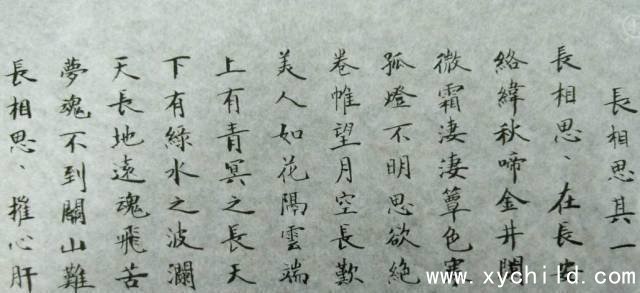 長相思其一
長相思、在長安
絡緯秋啼金井闌
微霜淒淒簟色寒
孤燈不明思欲絶
卷帷望月空長歎
美人如花隔雲端
上有青冥之長天
下有綠水之波瀾
天長地遠魂飛苦
夢魂不到關山難
長相思、摧心肝
www.xychild.com